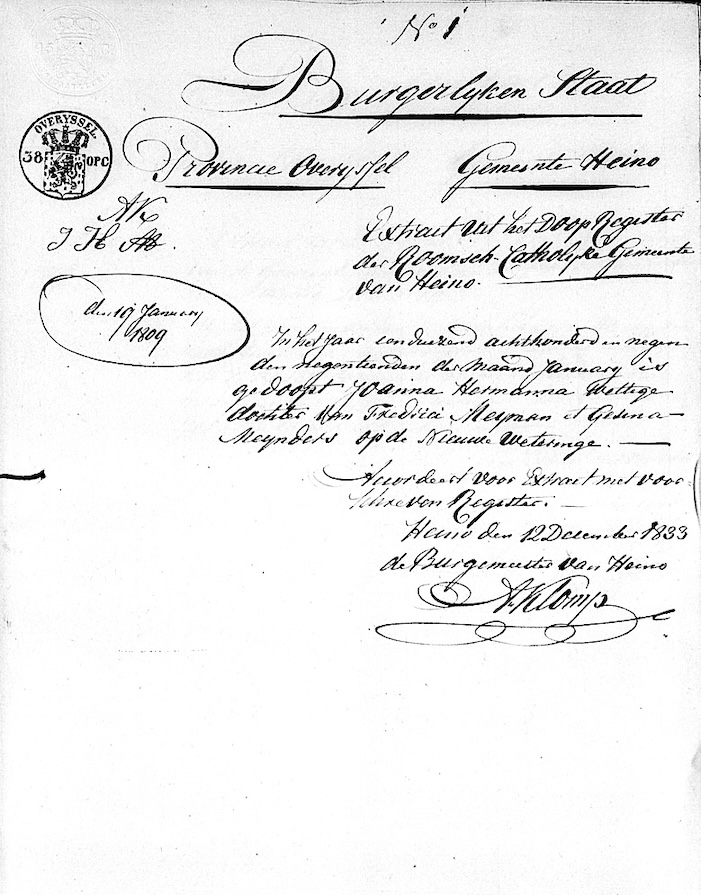 No 1
Burgerlyken Staat
OVERYSSEL.
38 OPC
Provincie Overyssel Gemeente Heino
AK
J H
Extract uit het Doop Register
der Roomsch-Catholyke Gemeente
van Heino.
den 19 January
1809
In het Jaar een duezend achthonderd en negen
den negentienden der maand January is
gedoopt Joanna Hermanna Wettege
dochter van Fredrici Meyman et Gesina
Meynders op de Nieuwe Weteringe.
Accordeert voor Extract met voor
schreven Register.
Heino den 12 December 1833
de Burgemeester van Heino
A. Klomp